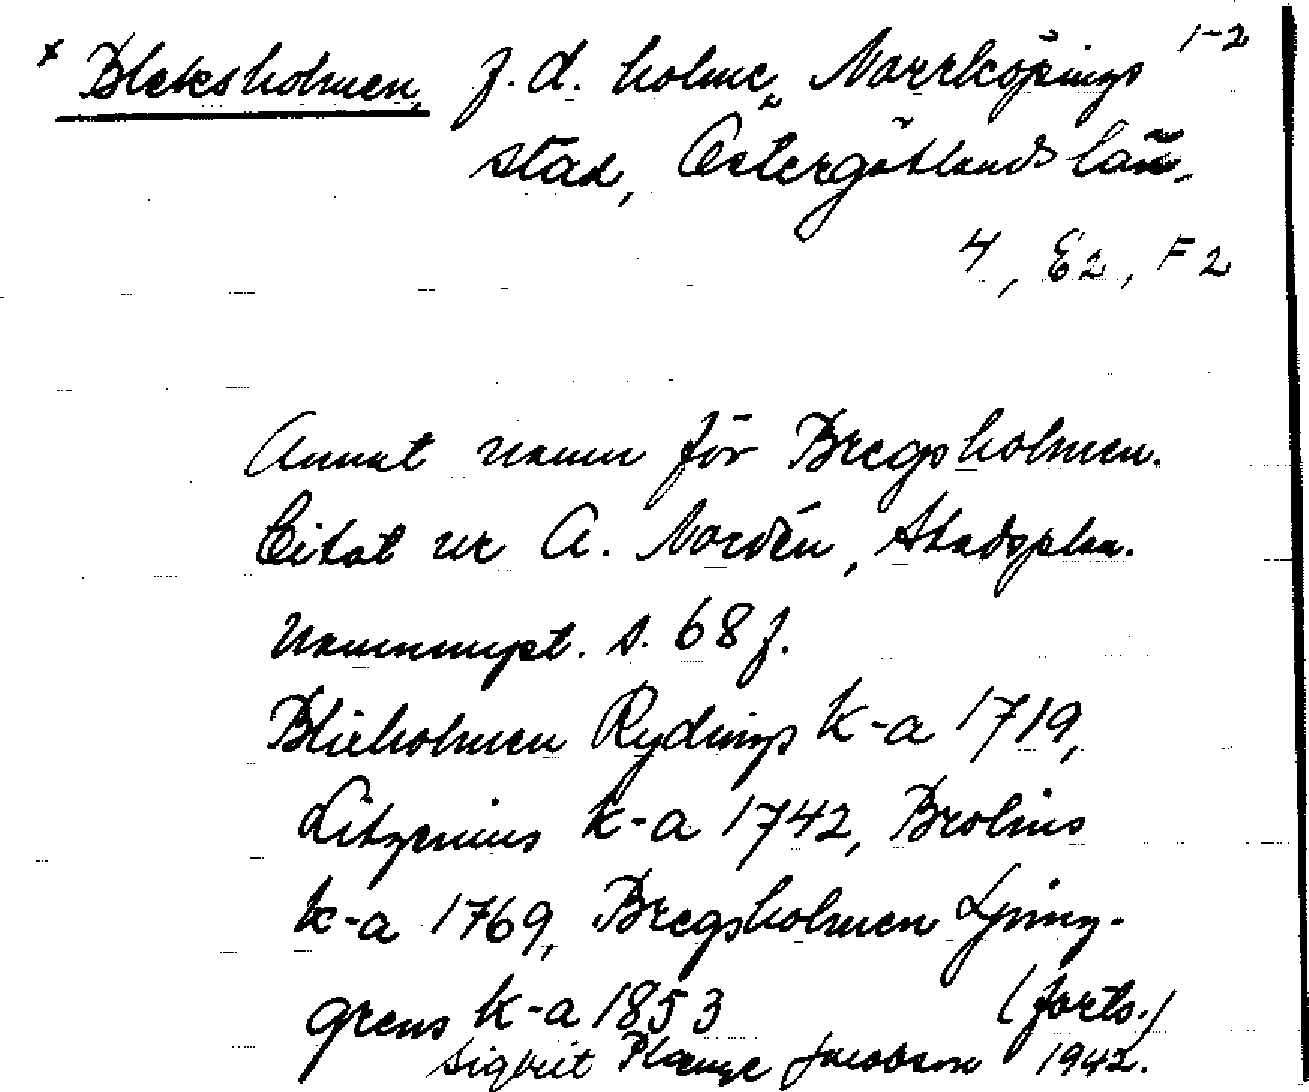 x Bleksholmen, f.d. holme, Norrköpings 1-2
stad, Östergötlands län.
4, E2, F2
Annat namn för Bregsholmen.
Citat ur A. Nordén, Stadsplan.
Namnuppst. s. 68 f.
Blieholmen Rydings k-a 1719,
Litzenius k-a 1742, Brolins
k-a 1769, Bregsholmen Ljung-
grens k-a 1853 (forts.)
Sigbrit Plænge Jacobson 1942.